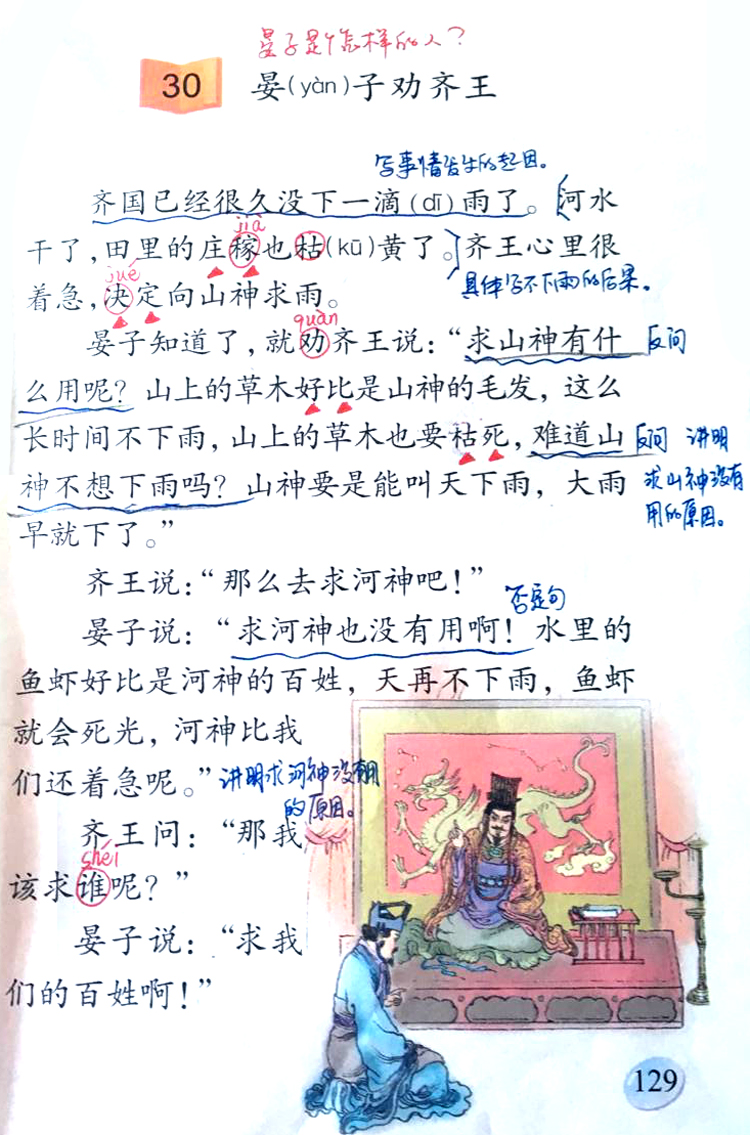 晏子是个怎样的人？
30 晏(yàn)子劝齐王
写事情发生的起因。
齐国已经很久没下一滴(dī)雨了。河水
jià
干了，田里的庄稼也枯(kū)黄了。齐王心里很
jué
着急，决定向山神求雨。
具体写不下雨的后果。
quàn
晏子知道了，就劝齐王说：“求山神有什 反问
么用呢？山上的草木好比是山神的毛发，这么
长时间不下雨，山上的草木也要枯死，难道山 反问 讲明
神不想下雨吗？山神要是能叫天下雨，大雨 求山神没有
早就下了。” 用的原因。
齐王说：“那么去求河神吧！”
否定句
晏子说：“求河神也没有用啊！水里的
鱼虾好比是河神的百姓，天再不下雨，鱼虾
就会死光，河神比我
们还着急呢。” 讲明求河神没有用
的原因。
齐王问：“那我
shéi
该求谁呢？”
晏子说：“求我
们的百姓啊！”
129